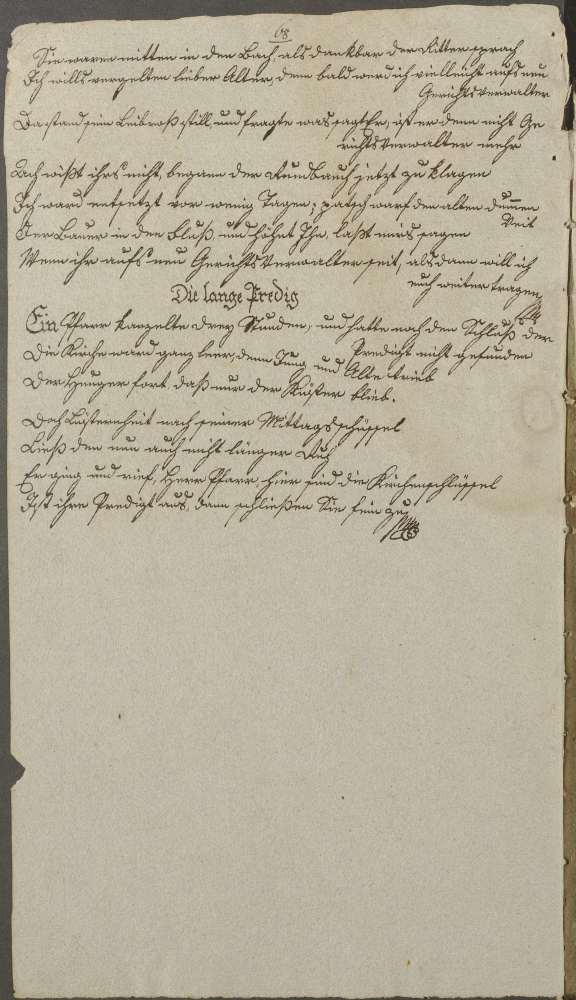 68
Sie waren mitten in den Bach, als dankbar der Ritter sprach
Ich wills vergelten lieber Alter, denn bald werd ich vielleicht aufs neu
Gerichtsverwalter
Da stand sein Leibroß still, und fragte was sagt Er, ist er denn nicht Ge
richtsverwalter mehr
Ach wißt ihrs nicht, begann der Rundbauch jetzt zu klagen
Ich ward entsetzt vor wenig Tagen; patsch warf den alten dummen
Veit
Der Bauer in den Fluß, und höhnt Ihn, laßt michs sagen
Wenn ihr aufs neu Gerichtsverwalter seit, alsdann will ich
euch weiter tragen
Die lange Predig
Ein Pfarr kanzelte drey Stunden, und hatte noch den Schluß der
Predigt nicht gefunden
Die Kirche ward ganz leer, denn Jung und Alte trieb
Der Hunger fort, daß nur der Küster blieb.
Doch Lüsternheit nach seiner Mittagsschüssel
Ließ den nun auch nicht länger Ruh
Er ging und rief, Herr Pfarr, hier sind die Kirchenschlüssel
Ist ihre Predigt aus, dann schließen Sie fein zu